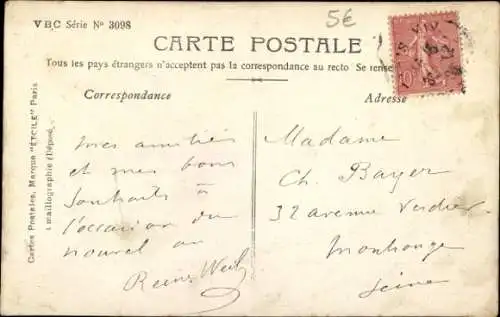 VBC Série Nº 3098
5€
CARTE POSTALE
Tous les pays étrangers n'acceptent pas la correspondance au recto Se rense
Correspondance
Adresse
Mes amitiés
et mes bons
souhaits à
l'occasion du
nouvel an
Reine Weil
Madame
Ch. Bayer
32 avenue Verdier
Montrouge
Seine
Cartes Postales, Marque "ÉTOILE" Paris
Emaillographie (Déposé)